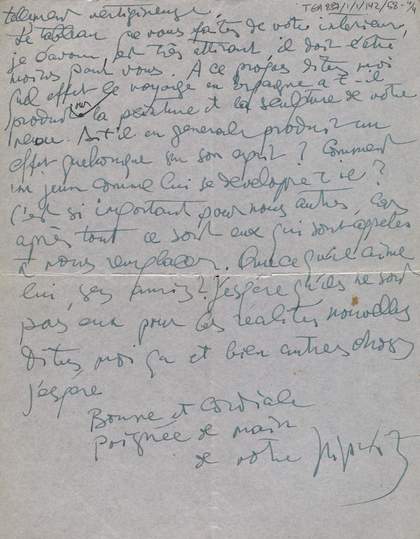 TGA 929/1/1/142/68-
tellement vertigineuse,
Le tableau que vous faites de votre interieur,
je l'avoue, est très attirant il doit l'être
moins pour vous. A ce propos dites moi
quel effet le voyage en Espagne a-t-il
produit sur la peinture et la sculpture de votre
neveu. A-t-il en generale produit un
effet quelconque sur son esprit? Comment
un jeune comme lui se developpe-t-il?
C'est si important pour nous autres, car
après tout ce sont eux qui sont appelés
à nous remplacer. Qu'est-ce qu'il aime
lui, ses amis? J'espère qu'ils ne sont
pas eux pour les realités nouvelles
Dites moi ça et bien autres choses
j'espère
Bonne et Cordiale
poignée de main
de votre